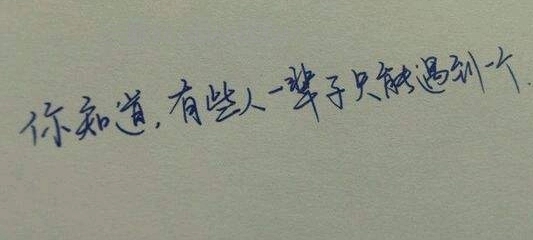 你知道,有些人一辈子只能遇到一个.